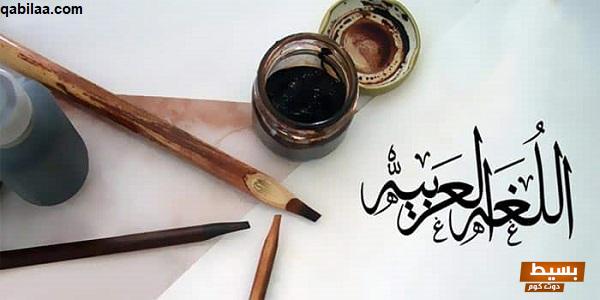 qabilaa.com
اللُغَه العَربيه
بسيط
دوت كوم